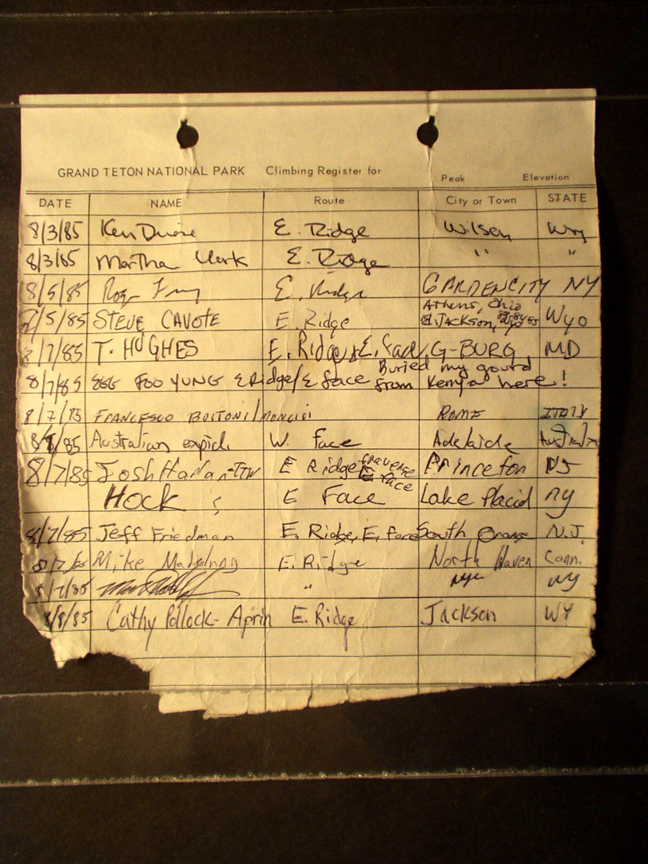 GRAND TETON NATIONAL PARK Climbing Register for Peak Elevation
DATE NAME Route City or Town STATE
8/3/85 Ken E. Ridge Wilson Wy
8/3/85 Martha Clark E. Ridge " "
8/5/85 E. Ridge GARDEN CITY NY
Athens, Ohio
8/5/85 STEVE CAVOTE E. Ridge Jackson, Wyo
8/7/85 T. HUGHES E. Ridge, E. face, G-BURG MD
8/7/85 EGG FOO YUNG E Ridge/E face Buried my gourd
from Kenya here!
8/7/85 FRANCESCO ROME ITALY
85 Australian exped. W face Adelaide Australia
8/7/85 Josh E Ridge traverse E face Princeton NJ
HOCK E Face Lake Placid NY
8/7/85 Jeff Friedman E. Ridge, E. face South Orange N.J.
8/7/85 Mike E. Ridge North Haven Conn.
8/7/85 " NYC NY
8/8/85 Cathy Pollock- E. Ridge Jackson WY